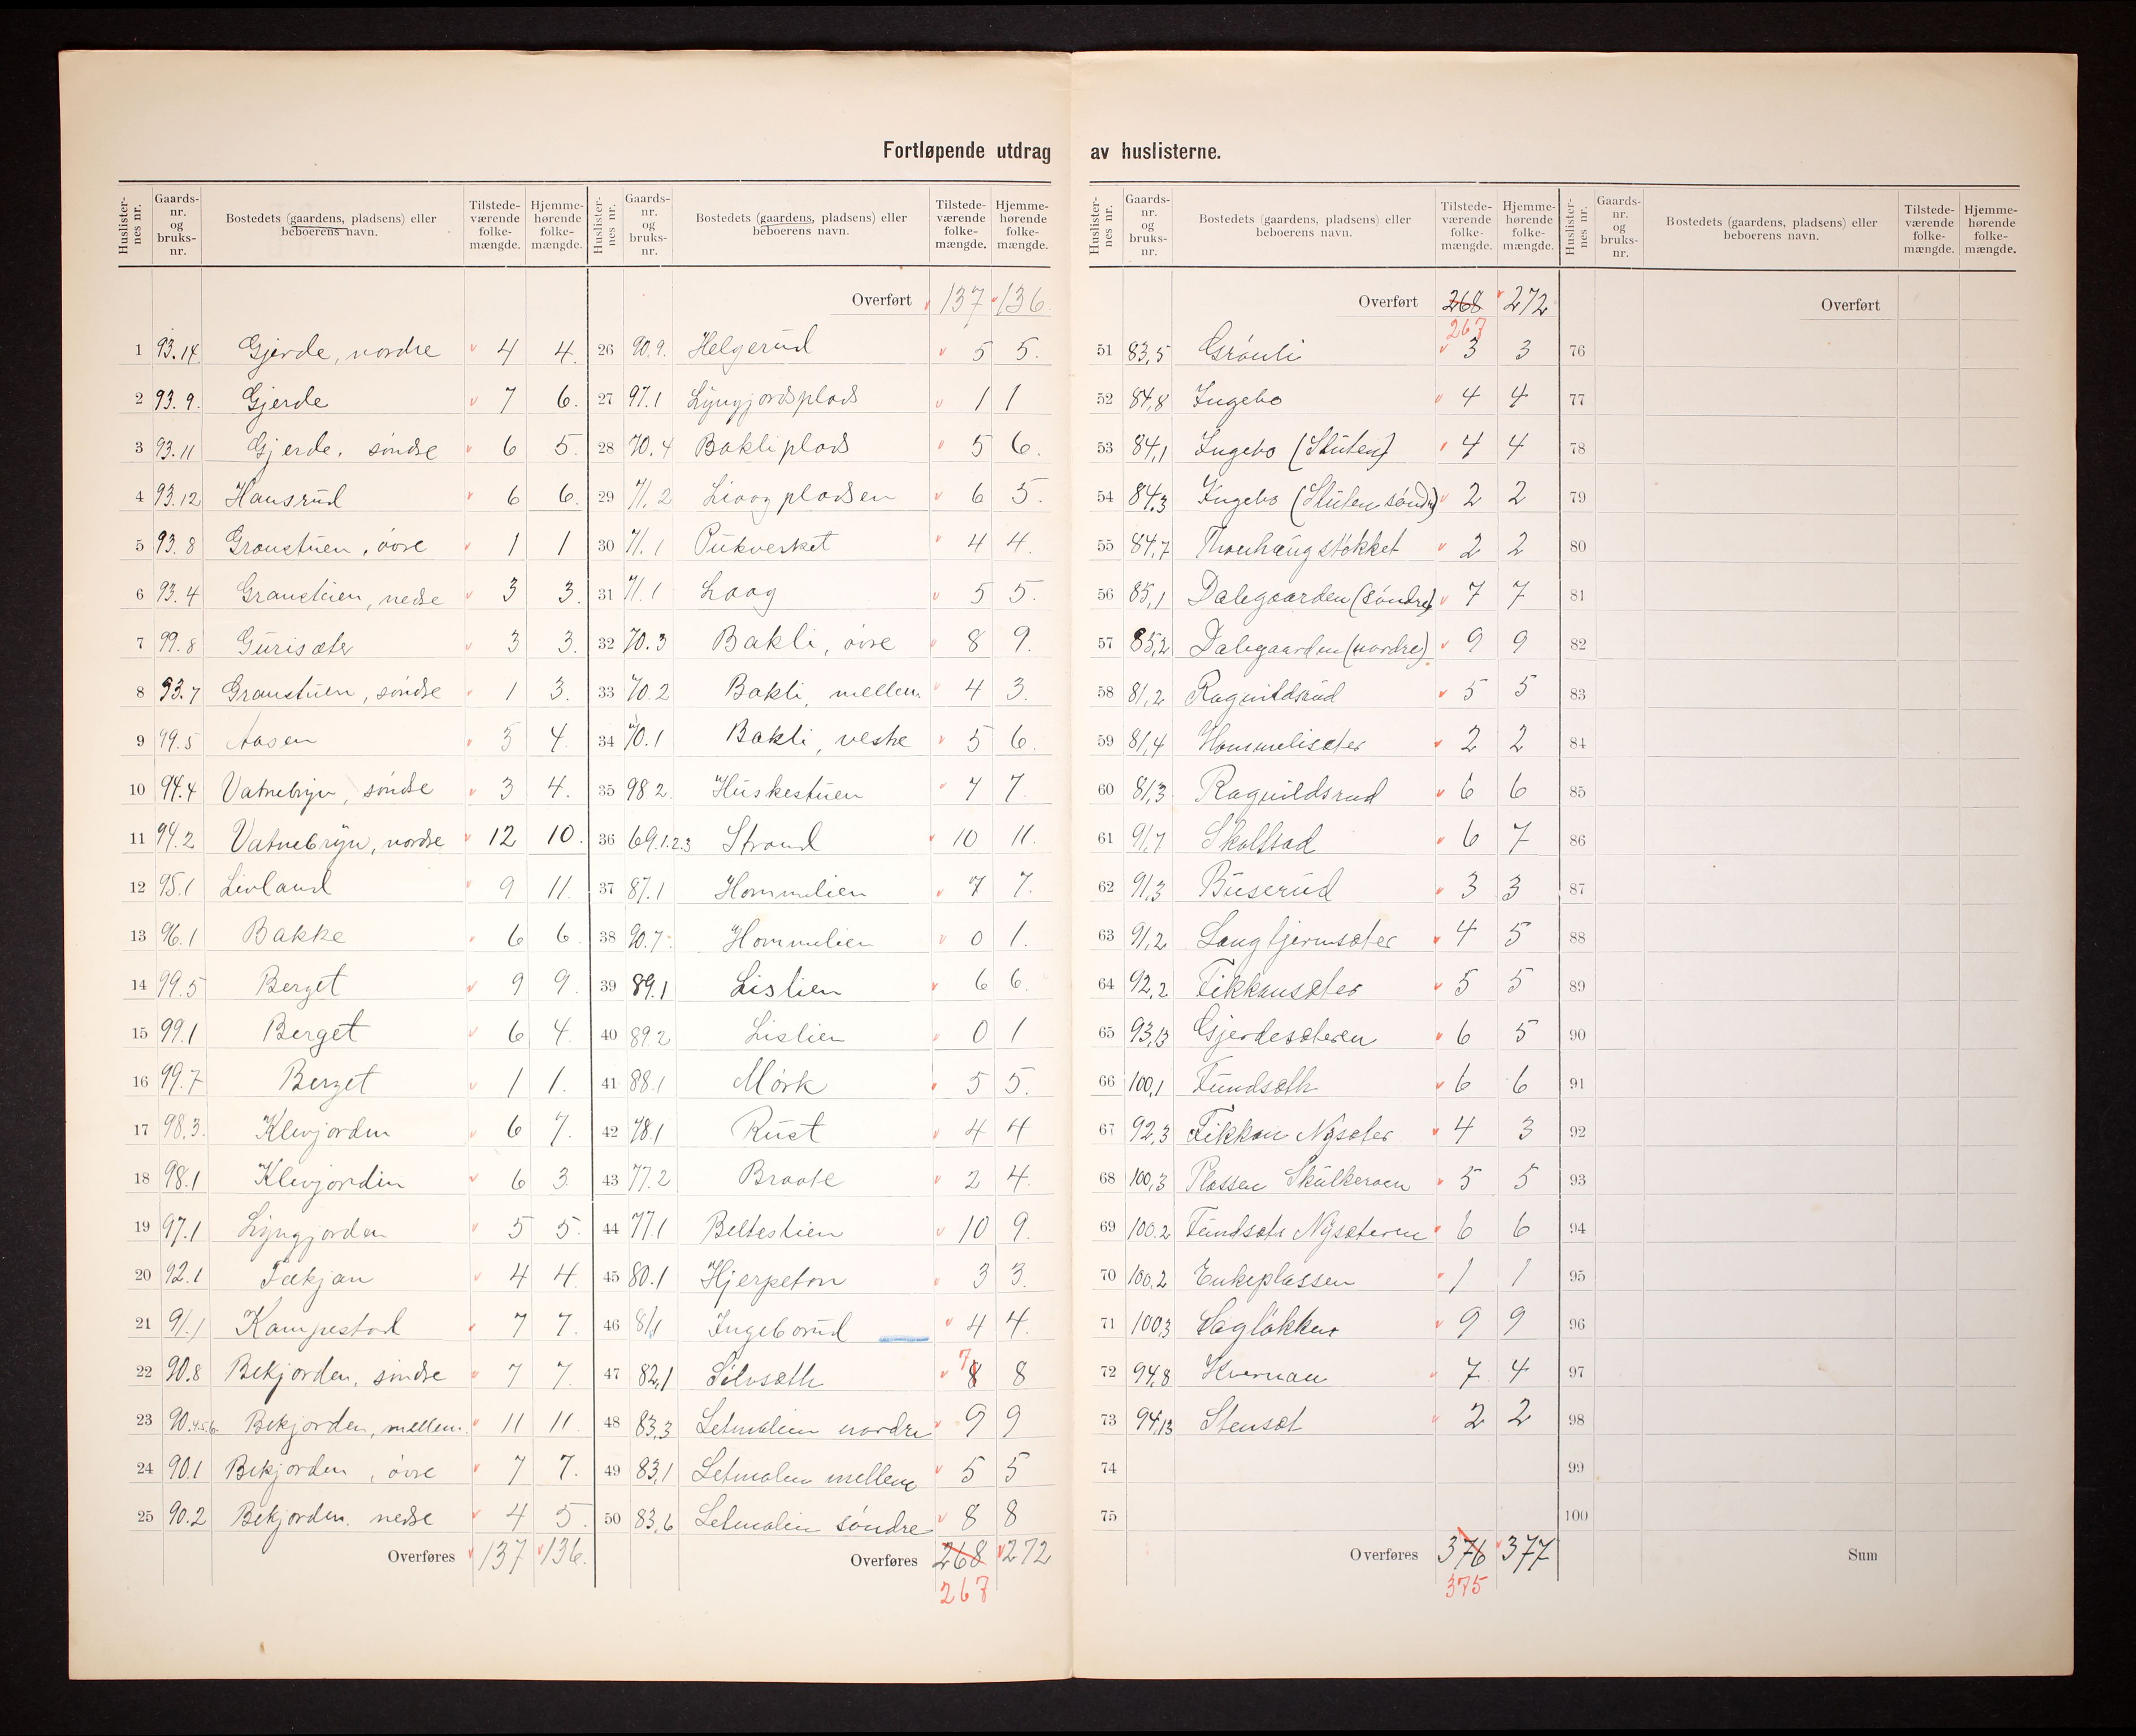 Fortløpende utdrag av huslisterne.
Huslisternes nr. Gaards-nr. og bruks-nr. Bostedets (gaardens, pladsens) eller beboerens navn. Tilstedeværende folkemængde. Hjemmehørende folkemængde.
1 93.14 Gjerde, nordre 4 4.
2 93.9. Gjerde 7 6.
3 93.11 Gjerde, söndre 6 5.
4 93.12 Hansrud 6 6.
5 93.8 Granstuen, övre 1 1
6 93.4 Granstuen, nedre 3 3.
7 99.8 Gurisæter 3 3.
8 93.7 Granstuen, söndre 1 3.
9 99.5 Aasen 3 4.
10 94.4 Vatnebryn, söndre 3 4.
11 94.2 Vatnebryn, nordre 12 10.
12 95.1 Livland 9 11.
13 96.1 Bakke 6 6.
14 99.5 Berget 9 9.
15 99.1 Berget 6 4.
16 99.7 Berget 1 1.
17 98.3. Klevjorden 6 7.
18 98.1 Klevjorden 6 3
19 97.1 Lyngjorden 5 5.
20 92.1 Fækjan 4 4.
21 91.1 Kampestad 7 7.
22 90.8 Bekjorden, söndre 7 7.
23 90.4.5.6. Bekjorden, mellem. 11 11
24 90.1 Bekjorden, övre 7 7.
25 90.2 Bekjorden. nedre 4 5.
Overføres 137 136.
Huslisternes nr. Gaards-nr. og bruks-nr. Bostedets (gaardens, pladsens) eller beboerens navn. Tilstedeværende folkemængde. Hjemmehørende folkemængde.
Overført 137 136.
26 90.9. Helgerud 5 5.
27 97.1 Lyngjordsplads 1 1
28 70.4 Bakliplads 5 6.
29 71.2 Liaagpladsen 6 5.
30 71.1 Pukverket 4 4.
31 71.1 Laag 5 5.
32 70.3 Bakli, övre 8 9.
33 70.2 Bakli, mellem. 4 3.
34 70.1 Bakli, vestre 5 6.
35 98 2. Huskestuen 7 7.
36 69.1.2.3 Strand 10 11.
37 87.1 Hommelien 7 7.
38 90.7. Hommelien 0 1.
39 89.1 Lislien 6 6.
40 89.2 Lislien 0 1
41 88.1 Mörk 5 5.
42 78.1 Rust 4 4
43 77.2 Braate 2 4.
44 77.1 Beltestien 10 9.
45 80.1 Hjerpeton 3 3.
46 81,1 Ingeborud 4 4.
47 82,1 Silvsæth 7 8 8
48 83,3 Letmolien nordre 9 9
49 83,1 Letmolien mellem 5 5
50 83,6 Letmolien söndre 8 8
Overføres 268 272
267
Huslisternes nr. Gaards-nr. og bruks-nr. Bostedets (gaardens, pladsens) eller beboerens navn. Tilstedeværende folkemængde. Hjemmehørende folkemængde.
Overført 268 272
267
51 83,5 Grönli 3 3
52 84,8 Ingebo 4 4
53 84,1 Ingebo (Stuten) 4 4
54 84,3 Ingebo (Stuten söndre) 2 2
55 84,7 2 2
56 85,1 Dalegaarden (söndre) 7 7
57 85,2 Dalegaarden (nordre) 9 9
58 81,2 Ragnildsrud 5 5
59 81,4 Hommelisæter 2 2
60 81,3 Ragnildsrud 6 6
61 91,7 Skalstad 6 7
62 91,3 Buserud 3 3
63 91,2 Langtjernsæter 4 5
64 92,2 Fikkansæter 5 5
65 93,13 Gjerdesæteren 6 5
66 100,1 Fundsæth 6 6
67 92,3 Fikkan Nysæter 4 3
68 100,3 Plassen Skulkeraen 5 5
69 100.2 Fundsæts Nysæteren 6 6
70 100,2 Enkeplassen 1 1
71 100,3 Saglökken 9 9
72 94,8 Kvernan 7 4
73 94,13 Stensæt 2 2
74
75
Overføres 376 377
375
Huslisternes nr. Gaards-nr. og bruks-nr. Bostedets (gaardens, pladsens) eller beboerens navn. Tilstedeværende folkemængde. Hjemmehørende folkemængde.
Overført
76
77
78
79
80
81
82
83
84
85
86
87
88
89
90
91
92
93
94
95
96
97
98
99
100
Sum